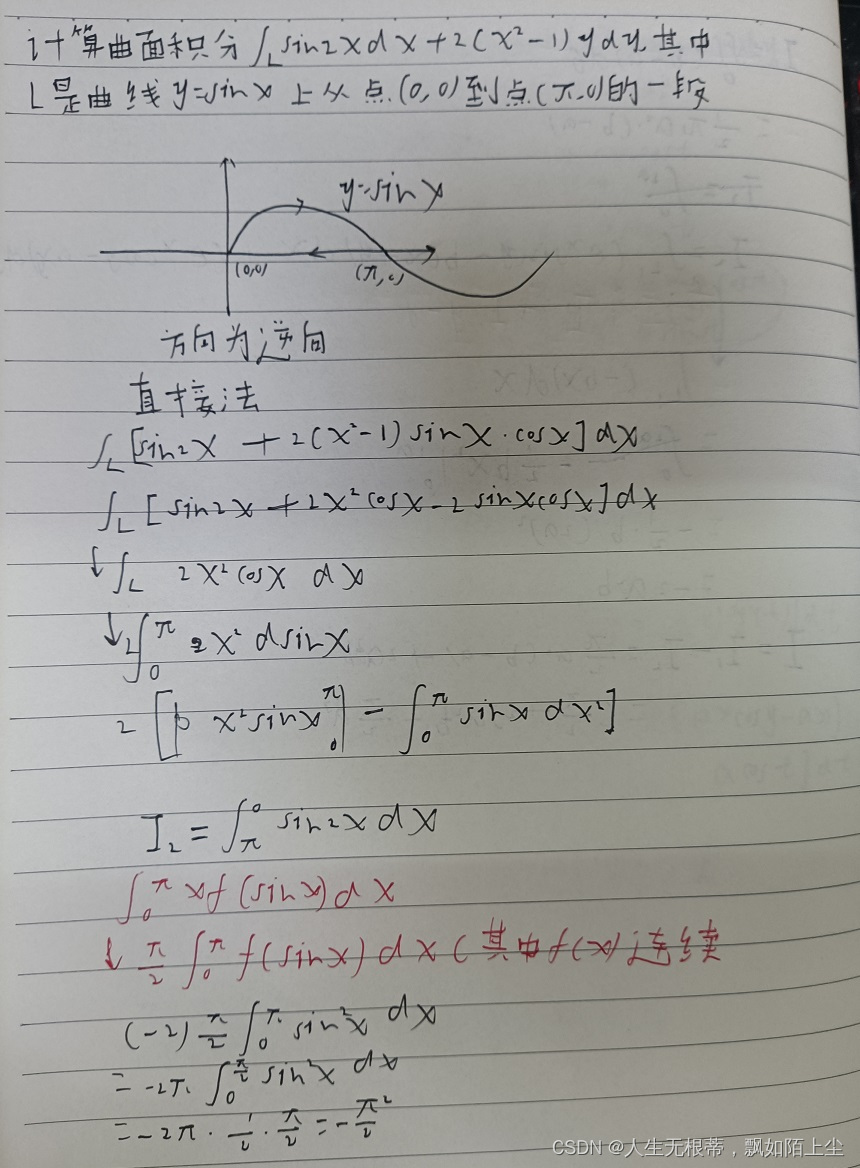 计算曲面积分∫_L sin2xdx+2(x²-1)ydy,其中
L是曲线y=sinx上从点(0,0)到点(π,0)的一段
y=sinx
(0,0)
(π,0)
方向为逆向
直接法
∫_L [sin2x + 2(x²-1)sinx·cosx]dx
∫_L [sin2x+2x²cosx-2sinxcosx]dx
↓∫_L 2x²cosx dx
↓2∫_0^π x² dsinx
2[ x²sinx|_0^π - ∫_0^π sinx dx²]
I₂=∫_π^0 sin2xdx
∫_0^π xf(sinx)dx
↓ π/2 ∫_0^π f(sinx)dx(其中f(x)连续
(-2)π/2 ∫_0^π sin²x dx
=-2π·∫_0^{π/2} sin²x dx
=-2π·1/2·π/2=-π²/2
CSDN @人生无根蒂，飘如陌上尘